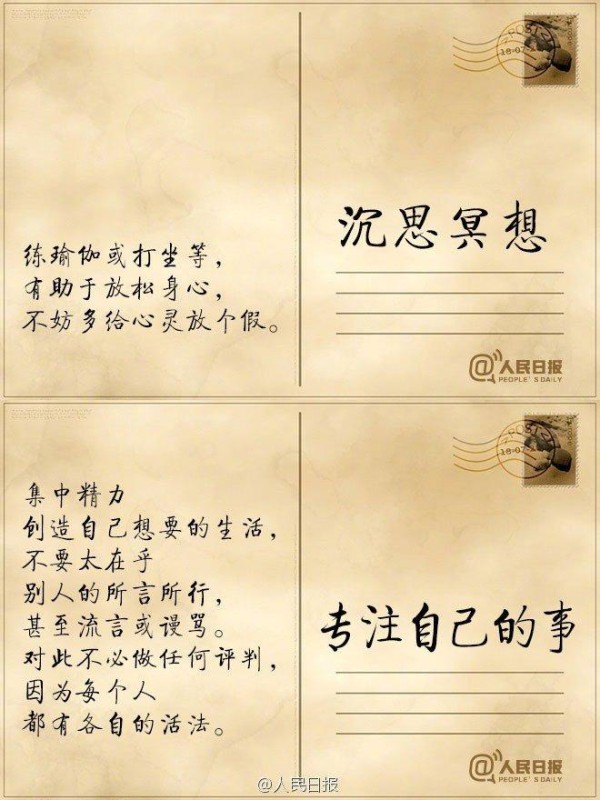 POST
18-07
练瑜伽或打坐等，
有助于放松身心，
不妨多给心灵放个假。
沉思冥想
@人民日报
PEOPLE'S DAILY
POST
18-07
集中精力
创造自己想要的生活，
不要太在乎
别人的所言所行，
甚至流言或谩骂。
对此不必做任何评判，
因为每个人
都有各自的活法。
专注自己的事
@人民日报
PEOPLE'S DAILY
@人民日报